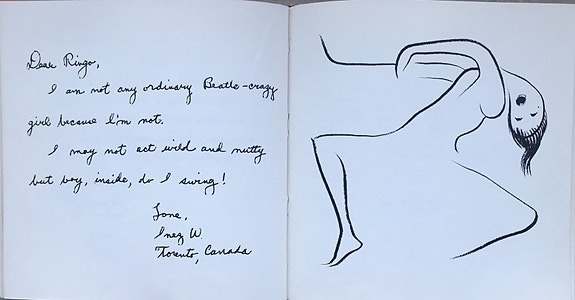 Dear Ringo,
I am not any ordinary Beatle-crazy
girl because I'm not.
I may not act wild and nutty
but boy, inside, do I swing!
Love,
Inez W
Toronto, Canada